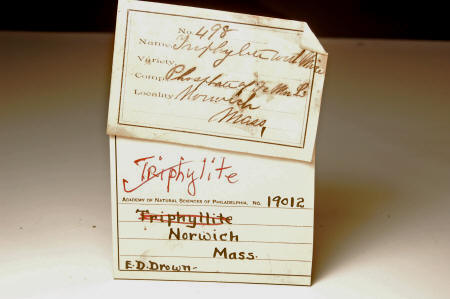 No. 498
Name Triphylite with
Variety
Comp. Phosphate of Fe Mn Li
Locality Norwich
Mass,
Triphylite
ACADEMY OF NATURAL SCIENCES OF PHILADELPHIA, NO. 19012
Triphyllite
Norwich
Mass.
E.D.Drown-